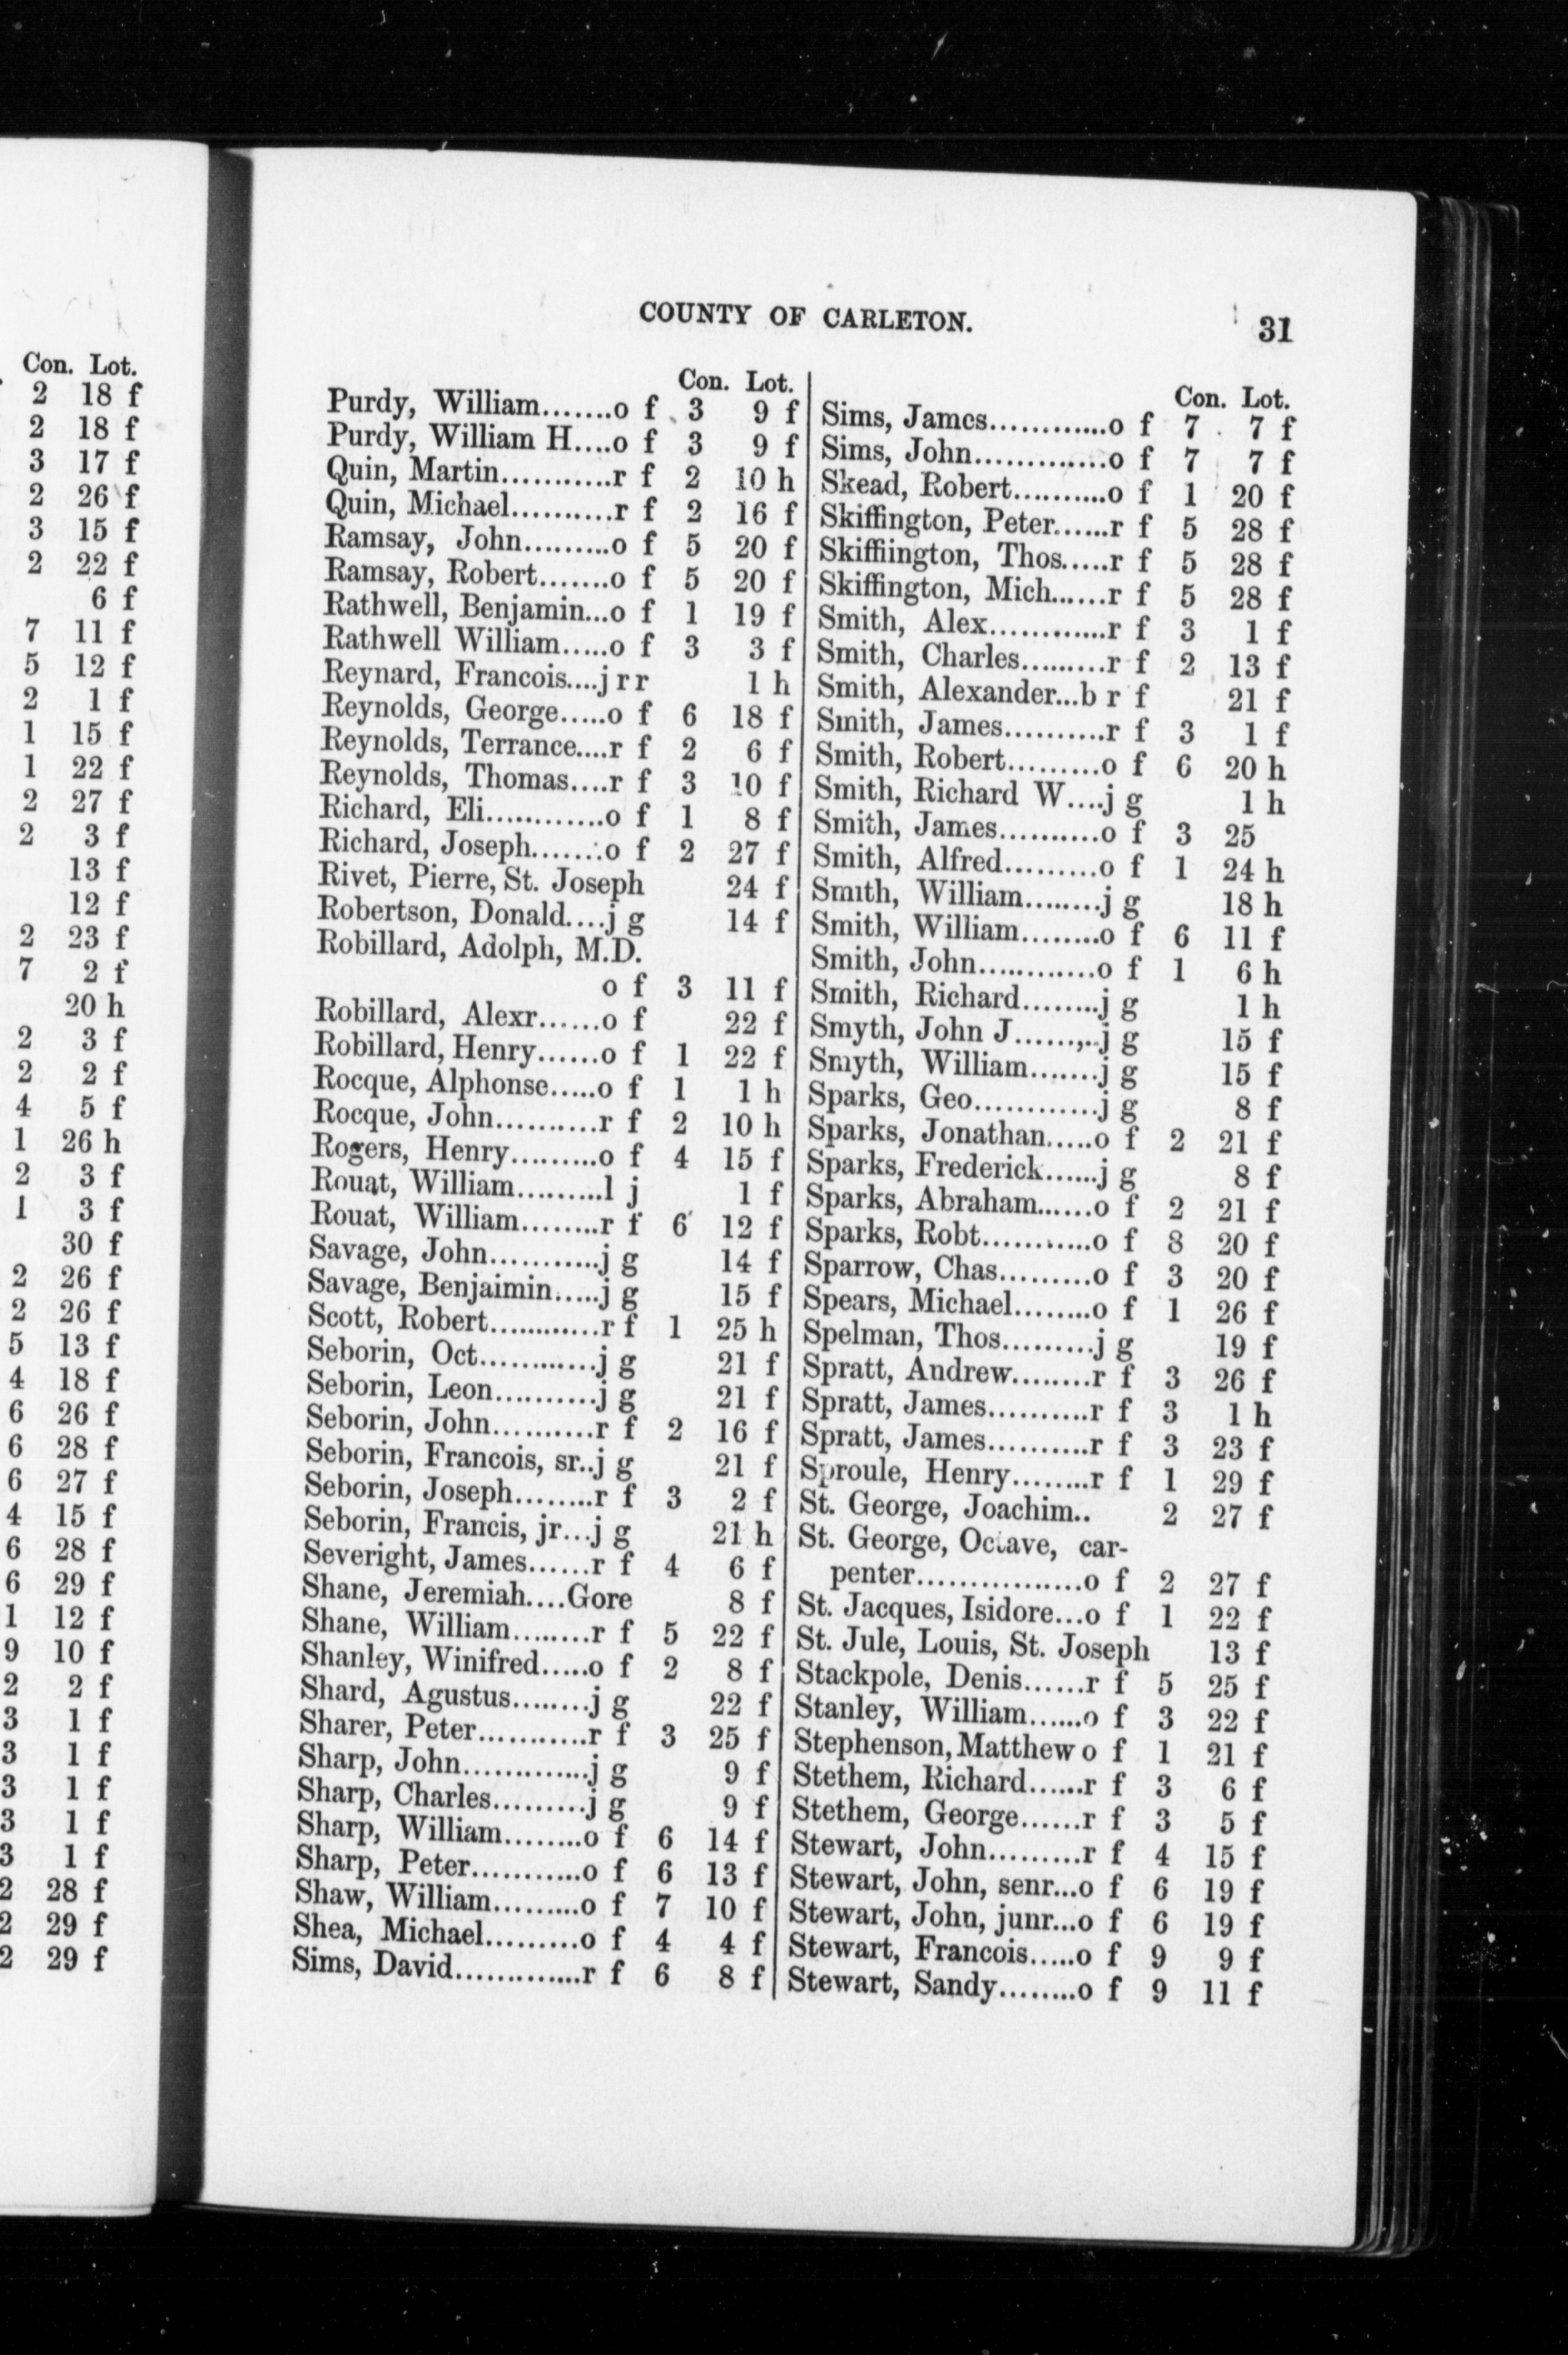 Con. Lot.
2 18 f
2 18 f
3 17 f
2 26 f
3 15 f
2 22 f
6 f
7 11 f
5 12 f
2 1 f
1 15 f
1 22 f
2 27 f
2 3 f
13 f
12 f
2 23 f
7 2 f
20 h
2 3 f
2 2 f
4 5 f
1 26 h
2 3 f
1 3 f
30 f
2 26 f
2 26 f
5 13 f
4 18 f
6 26 f
6 28 f
6 27 f
4 15 f
6 28 f
6 29 f
1 12 f
9 10 f
2 2 f
3 1 f
3 1 f
3 1 f
3 1 f
3 1 f
2 28 f
2 29 f
2 29 f
COUNTY OF CARLETON. 31
Con. Lot.
Purdy, William.......o f 3 9 f
Purdy, William H....o f 3 9 f
Quin, Martin...........r f 2 10 h
Quin, Michael..........r f 2 16 f
Ramsay, John.........o f 5 20 f
Ramsay, Robert.......o f 5 20 f
Rathwell, Benjamin...o f 1 19 f
Rathwell William.....o f 3 3 f
Reynard, Francois....j r r 1 h
Reynolds, George.....o f 6 18 f
Reynolds, Terrance....r f 2 6 f
Reynolds, Thomas....r f 3 10 f
Richard, Eli............o f 1 8 f
Richard, Joseph.......o f 2 27 f
Rivet, Pierre, St. Joseph 24 f
Robertson, Donald....j g 14 f
Robillard, Adolph, M.D.
o f 3 11 f
Robillard, Alexr......o f 22 f
Robillard, Henry......o f 1 22 f
Rocque, Alphonse.....o f 1 1 h
Rocque, John..........r f 2 10 h
Rogers, Henry.........o f 4 15 f
Rouat, William.........l j 1 f
Rouat, William........r f 6 12 f
Savage, John...........j g 14 f
Savage, Benjaimin.....j g 15 f
Scott, Robert...........r f 1 25 h
Seborin, Oct...........j g 21 f
Seborin, Leon..........j g 21 f
Seborin, John..........r f 2 16 f
Seborin, Francois, sr..j g 21 f
Seborin, Joseph........r f 3 2 f
Seborin, Francis, jr...j g 21 h
Severight, James......r f 4 6 f
Shane, Jeremiah....Gore 8 f
Shane, William........r f 5 22 f
Shanley, Winifred.....o f 2 8 f
Shard, Agustus........j g 22 f
Sharer, Peter...........r f 3 25 f
Sharp, John.............j g 9 f
Sharp, Charles.........j g 9 f
Sharp, William........o f 6 14 f
Sharp, Peter...........o f 6 13 f
Shaw, William.........o f 7 10 f
Shea, Michael.........o f 4 4 f
Sims, David.............r f 6 8 f
Con. Lot.
Sims, James............o f 7 7 f
Sims, John.............o f 7 7 f
Skead, Robert..........o f 1 20 f
Skiffington, Peter......r f 5 28 f
Skiffiington, Thos.....r f 5 28 f
Skiffington, Mich......r f 5 28 f
Smith, Alex............r f 3 1 f
Smith, Charles.........r f 2 13 f
Smith, Alexander...b r f 21 f
Smith, James..........r f 3 1 f
Smith, Robert.........o f 6 20 h
Smith, Richard W....j g 1 h
Smith, James..........o f 3 25
Smith, Alfred.........o f 1 24 h
Smith, William........j g 18 h
Smith, William........o f 6 11 f
Smith, John............o f 1 6 h
Smith, Richard........j g 1 h
Smyth, John J......,..j g 15 f
Smyth, William.......j g 15 f
Sparks, Geo............j g 8 f
Sparks, Jonathan.....o f 2 21 f
Sparks, Frederick......j g 8 f
Sparks, Abraham......o f 2 21 f
Sparks, Robt...........o f 8 20 f
Sparrow, Chas.........o f 3 20 f
Spears, Michael........o f 1 26 f
Spelman, Thos.........j g 19 f
Spratt, Andrew........r f 3 26 f
Spratt, James..........r f 3 1 h
Spratt, James..........r f 3 23 f
Sproule, Henry........r f 1 29 f
St. George, Joachim.. 2 27 f
St. George, Octave, car-
penter................o f 2 27 f
St. Jacques, Isidore...o f 1 22 f
St. Jule, Louis, St. Joseph 13 f
Stackpole, Denis......r f 5 25 f
Stanley, William......o f 3 22 f
Stephenson, Matthew o f 1 21 f
Stethem, Richard......r f 3 6 f
Stethem, George......r f 3 5 f
Stewart, John.........r f 4 15 f
Stewart, John, senr...o f 6 19 f
Stewart, John, junr...o f 6 19 f
Stewart, Francois.....o f 9 9 f
Stewart, Sandy........o f 9 11 f